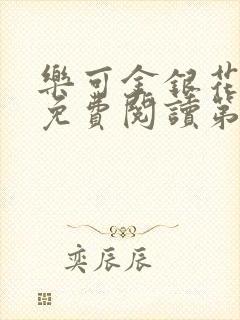 樂可金銀花
免費閱讀第
奕辰辰